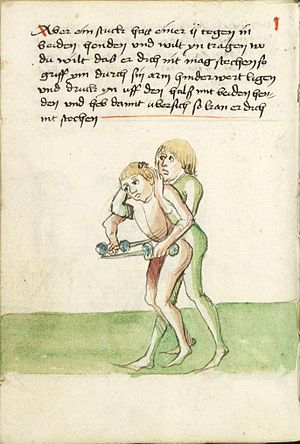 Aber ein stuck hatt einer ij tegen in
beiden henden und wilt yn tragen wo
du wilt daß er dich nit mag stechen so
griff ym durch sin arm hinderwert ligen
und druck yn uff den halß mit beiden hen¬
den und heb damit ubersich so kan er dich
nit stechen
1